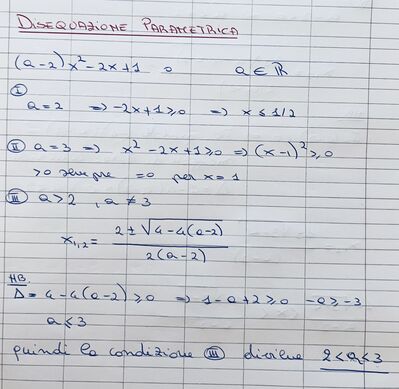 DISEQUAZIONE PARAMETRICA
(a-2)x²-2x+1 0 a∈ℝ
Ⓘ
a=2 ⇒ -2x+1≥0 ⇒ x≤1/2
Ⓘⓘ a=3 ⇒ x²-2x+1≥0 ⇒ (x-1)²≥0
>0 sempre =0 per x=1
III a>2, a≠3
x₁,₂= (2±√(4-4(a-2)))/(2(a-2))
NB.
Δ=4-4(a-2)≥0 ⇒ 1-a+2≥0 -a≥-3
a≤3
quindi la condizione III diviene 2<a<3